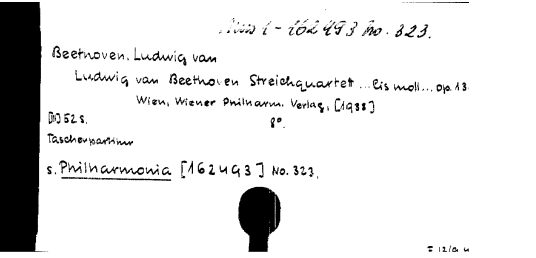 Mus 1-162493 No. 323.
Beethoven, Ludwig van
Ludwig van Beethoven Streichquartett ... Cis moll ... op. 13
Wien, Wiener Philharm. Verlag, [1938]
52 S. 8°.
Taschenpartitur
s. Philharmonia [162493] No. 323.